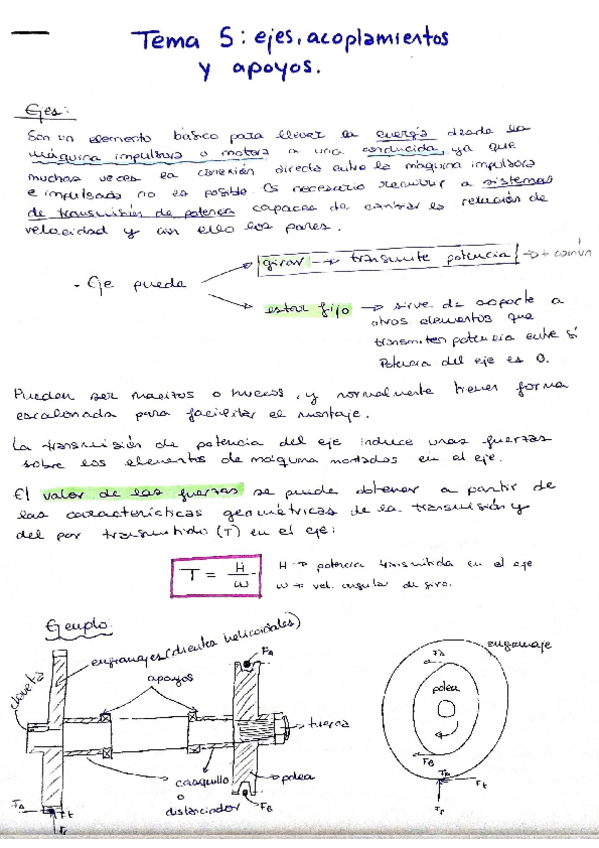 Tema 5: ejes, acoplamientos
y apoyos.
Ejes:
Son un elemento básico para llevar la energía desde la
máquina impulsora o motora a una conducida, ya que
muchas veces la conexión directa entre la máquina impulsora
e impulsada no es posible. Es necesario recurrir a sistemas
de transmisión de potencia capaces de cambiar la relación de
velocidad y con ello los pares.
girar → transmite potencia → + común
- Eje puede
estar fijo → sirve de soporte a
otros elementos que
transmiten potencia entre sí
Potencia del eje es 0.
Pueden ser macizos o huecos, y normalmente tienen forma
escalonada para facilitar el montaje.
La transmisión de potencia del eje induce unas fuerzas
sobre los elementos de máquina montados en el eje.
El valor de las fuerzas se puede obtener a partir de
las características geométricas de la transmisión y
del par transmitido (T) en el eje:
T = H/ω
H → potencia transmitida en el eje
ω → vel. angular de giro.
Ejemplo:
engranajes (dientes helicoidales)
chaveta
apoyos
FA
tuerca
casquillo
o
distanciador
polea
FB
Ft
Fr
engranaje
polea
FB
Ft
Fr